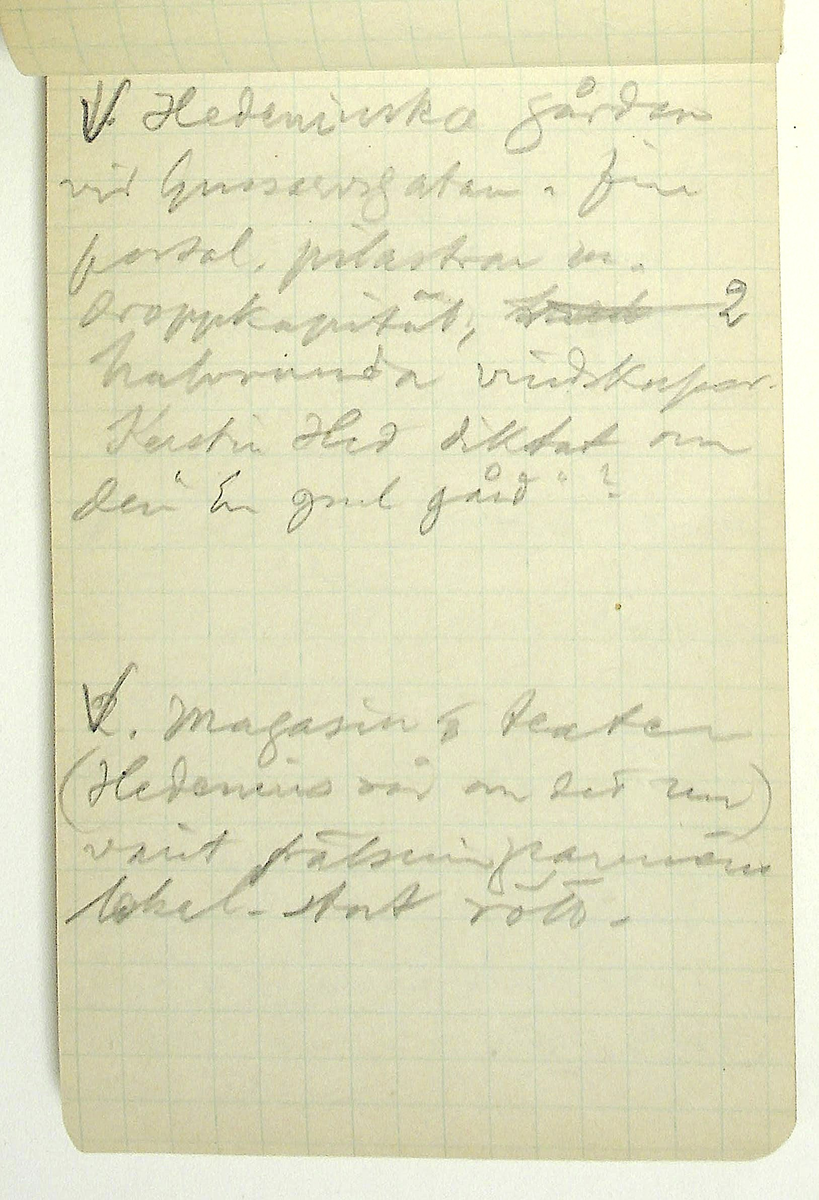 1. Hedeniuska gården
vid Gussarvsgatan. fin
portal. pilastrar m.
droppkapitäl, 2
halvrunda vindskupor.
Kerstin Hed diktat om
den "En gml gård"?
2. Magasin & teater
(Hedenius rår om det nu)
varit frälsningsarméns
lokal. stort rött.